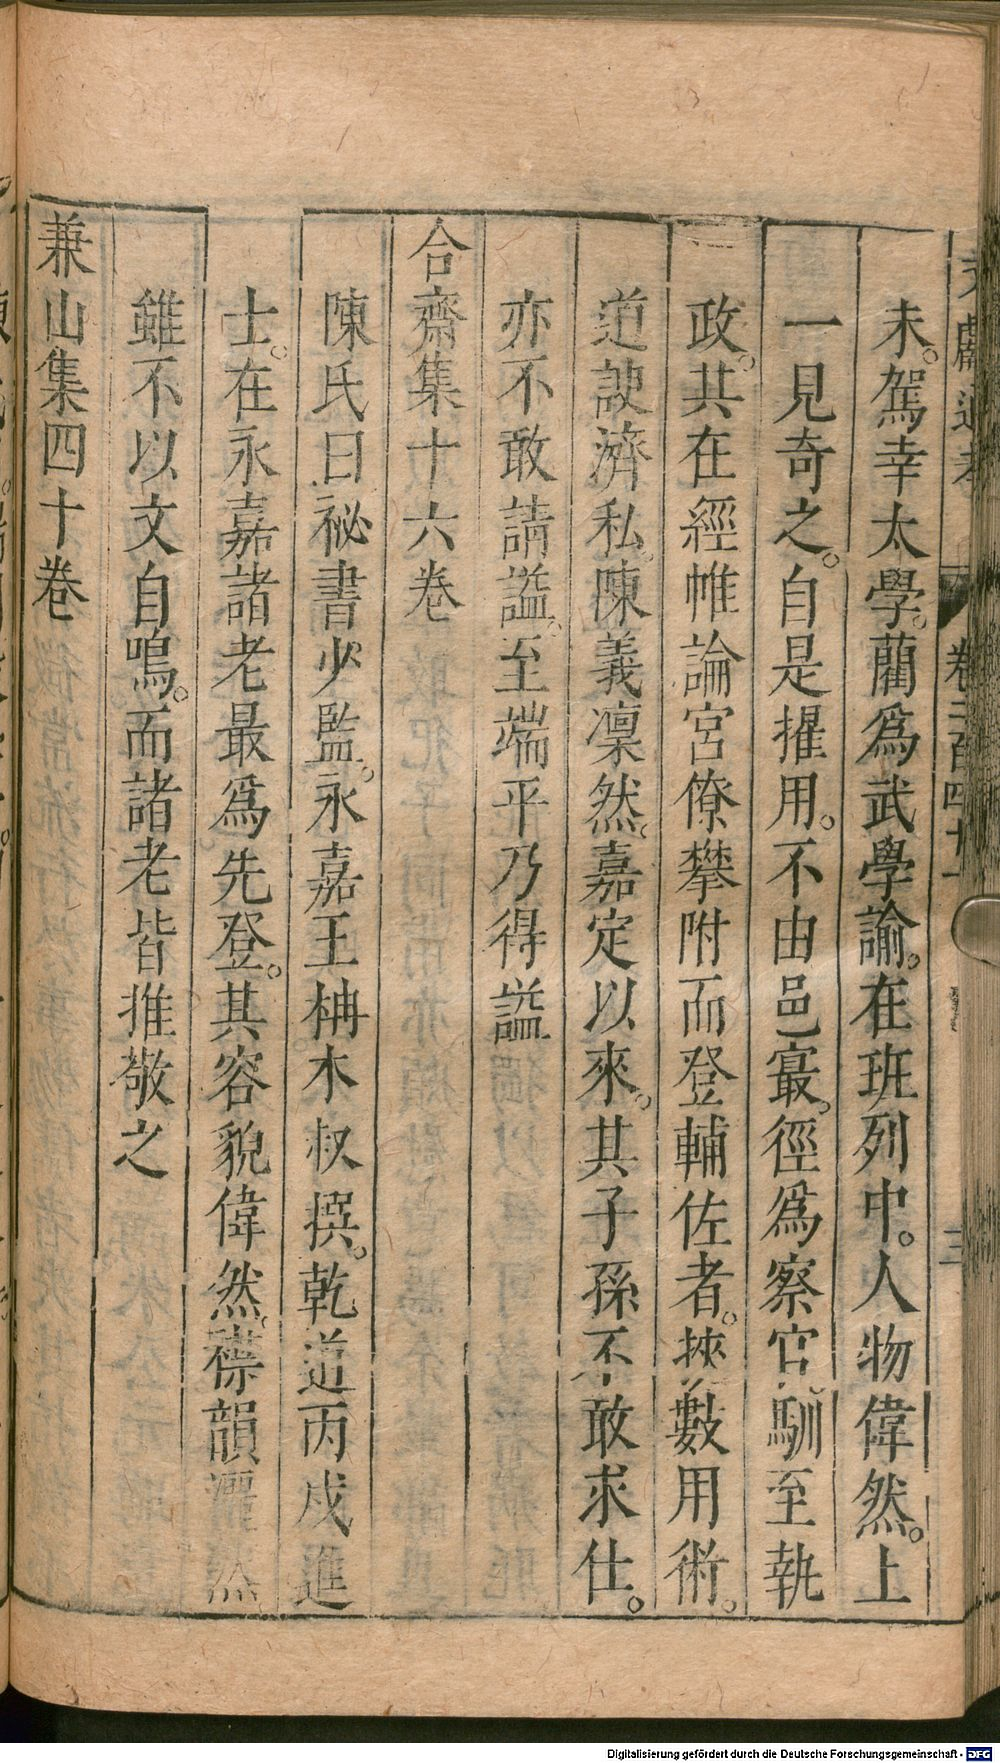 文獻通考 卷二百四十一 三
未。駕幸太學。藺爲武學諭。在班列中。人物偉然。上
一見奇之。自是擢用。不由邑寂。徑爲察官。馴至執
政。其在經帷論宮僚攀附而登輔佐者。挾數用術。
道諛濟私。陳義凜然。嘉定以來。其子孫不敢求仕。
亦不敢請謚。至端平乃得謚
合齋集十六卷
陳氏曰祕書少監。永嘉王柟木叔撰。乾道丙戌進
士。在永嘉諸老最爲先登。其容貌偉然。襟韻灑然
雖不以文自鳴。而諸老皆推敬之
兼山集四十卷
Digitalisierung gefördert durch die Deutsche Forschungsgemeinschaft - DFG